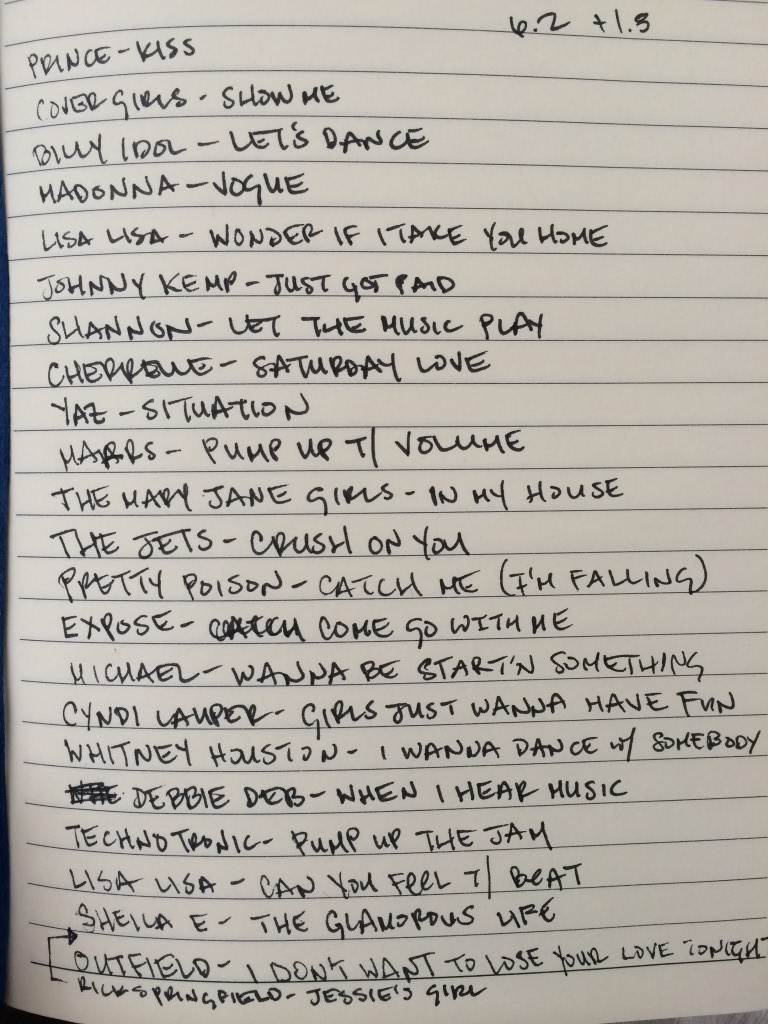 6.2 +1.3
PRINCE - KISS
COVER GIRLS - SHOW ME
BILLY IDOL - LET'S DANCE
MADONNA - VOGUE
LISA LISA - WONDER IF I TAKE YOU HOME
JOHNNY KEMP - JUST GOT PAID
SHANNON - LET THE MUSIC PLAY
CHERRELLE - SATURDAY LOVE
YAZ - SITUATION
MARRS - PUMP UP T/ VOLUME
THE MARY JANE GIRLS - IN MY HOUSE
THE JETS - CRUSH ON YOU
PRETTY POISON - CATCH ME (I'M FALLING)
EXPOSE - CATCH COME GO WITH ME
MICHAEL - WANNA BE START'N SOMETHING
CYNDI LAUPER - GIRLS JUST WANNA HAVE FUN
WHITNEY HOUSTON - I WANNA DANCE W/ SOMEBODY
DEBBIE DEB - WHEN I HEAR MUSIC
TECHNOTRONIC - PUMP UP THE JAM
LISA LISA - CAN YOU FEEL T/ BEAT
SHEILA E - THE GLAMOROUS LIFE
OUTFIELD - I DON'T WANT TO LOSE YOUR LOVE TONIGHT
RICK SPRINGFIELD - JESSIE'S GIRL